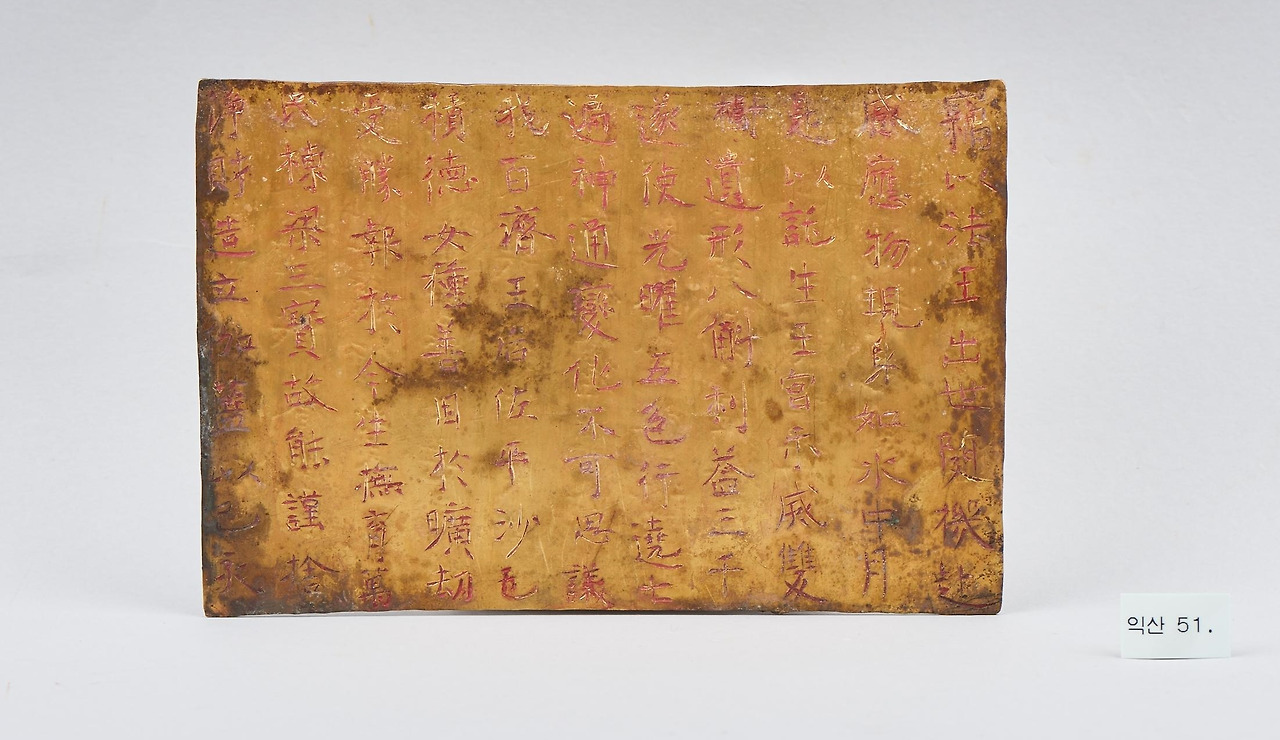 竊以法王出世隨機赴
感應物現身如水中月
是以託生王宮示滅雙
樹遺形八斛利益三千
遂使光曜五色行遶七
遍神通變化不可思議
我百濟王后佐平沙乇
積德女種善因於曠劫
受勝報於今生撫育萬
民棟梁三寶故能謹捨
淨財造立伽藍以己亥
익산 51.